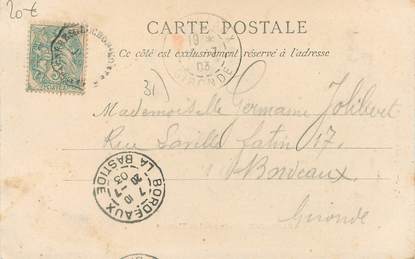 20€
CARTE POSTALE
Ce côté est exclusivement réservé à l'adresse
19
03
GIRONDE
31
Mademoiselle Germaine Jolibert
Rue 17,
Bordeaux
Gironde
BORDEAUX
7 10
20 -7
03
LA BASTIDE